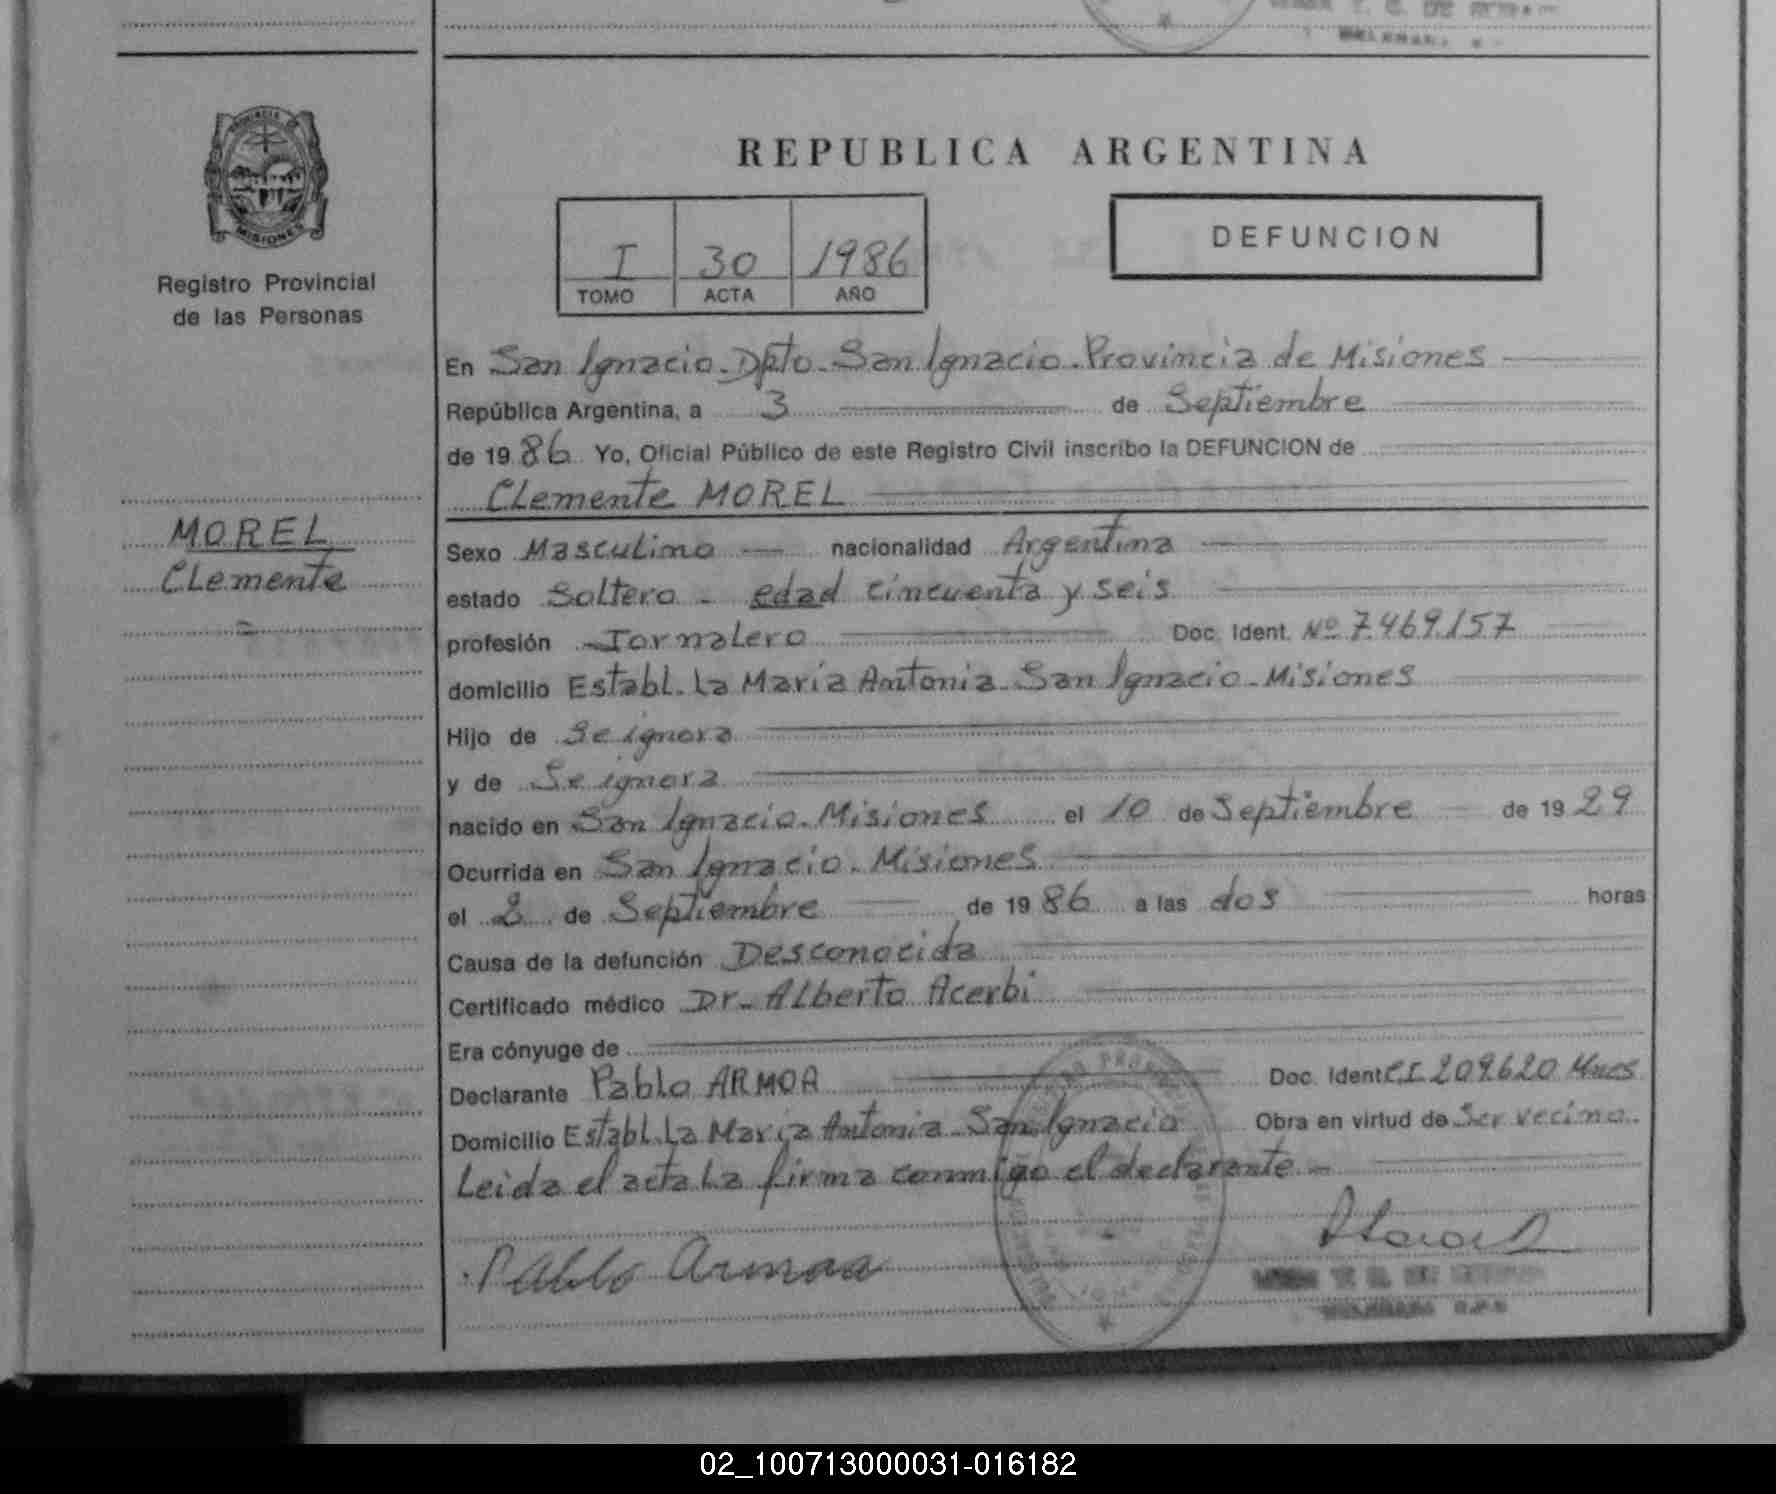 REPUBLICA ARGENTINA
PROVINCIA DE
MISIONES
Registro Provincial
de las Personas
I 30 1986
TOMO ACTA AÑO
DEFUNCION
MOREL
CLemente
En San Ignacio. Dpto. San Ignacio. Provincia de Misiones
República Argentina, a 3 de Septiembre
de 1986 Yo, Oficial Público de este Registro Civil inscribo la DEFUNCION de
CLemente MOREL
Sexo Masculino nacionalidad Argentina
estado Soltero - edad cincuenta y seis
profesión Jornalero Doc. Ident. Nº 7.469.157
domicilio Establ. La Maria Antonia. San Ignacio. Misiones
Hijo de Se ignora
y de Se ignora
nacido en San Ignacio. Misiones el 10 de Septiembre de 1929
Ocurrida en San Ignacio. Misiones
el 2 de Septiembre de 1986 a las dos horas
Causa de la defunción Desconocida
Certificado médico Dr. Alberto Acerbi
Era cónyuge de
Declarante Pablo ARMOA Doc. Ident C.I. 209.620 Mnes
Domicilio Establ. La Maria Antonia. San Ignacio Obra en virtud de Ser vecino.
Leida el acta La firma conmigo el declarante -
Pablo Armoa
02_100713000031-016182